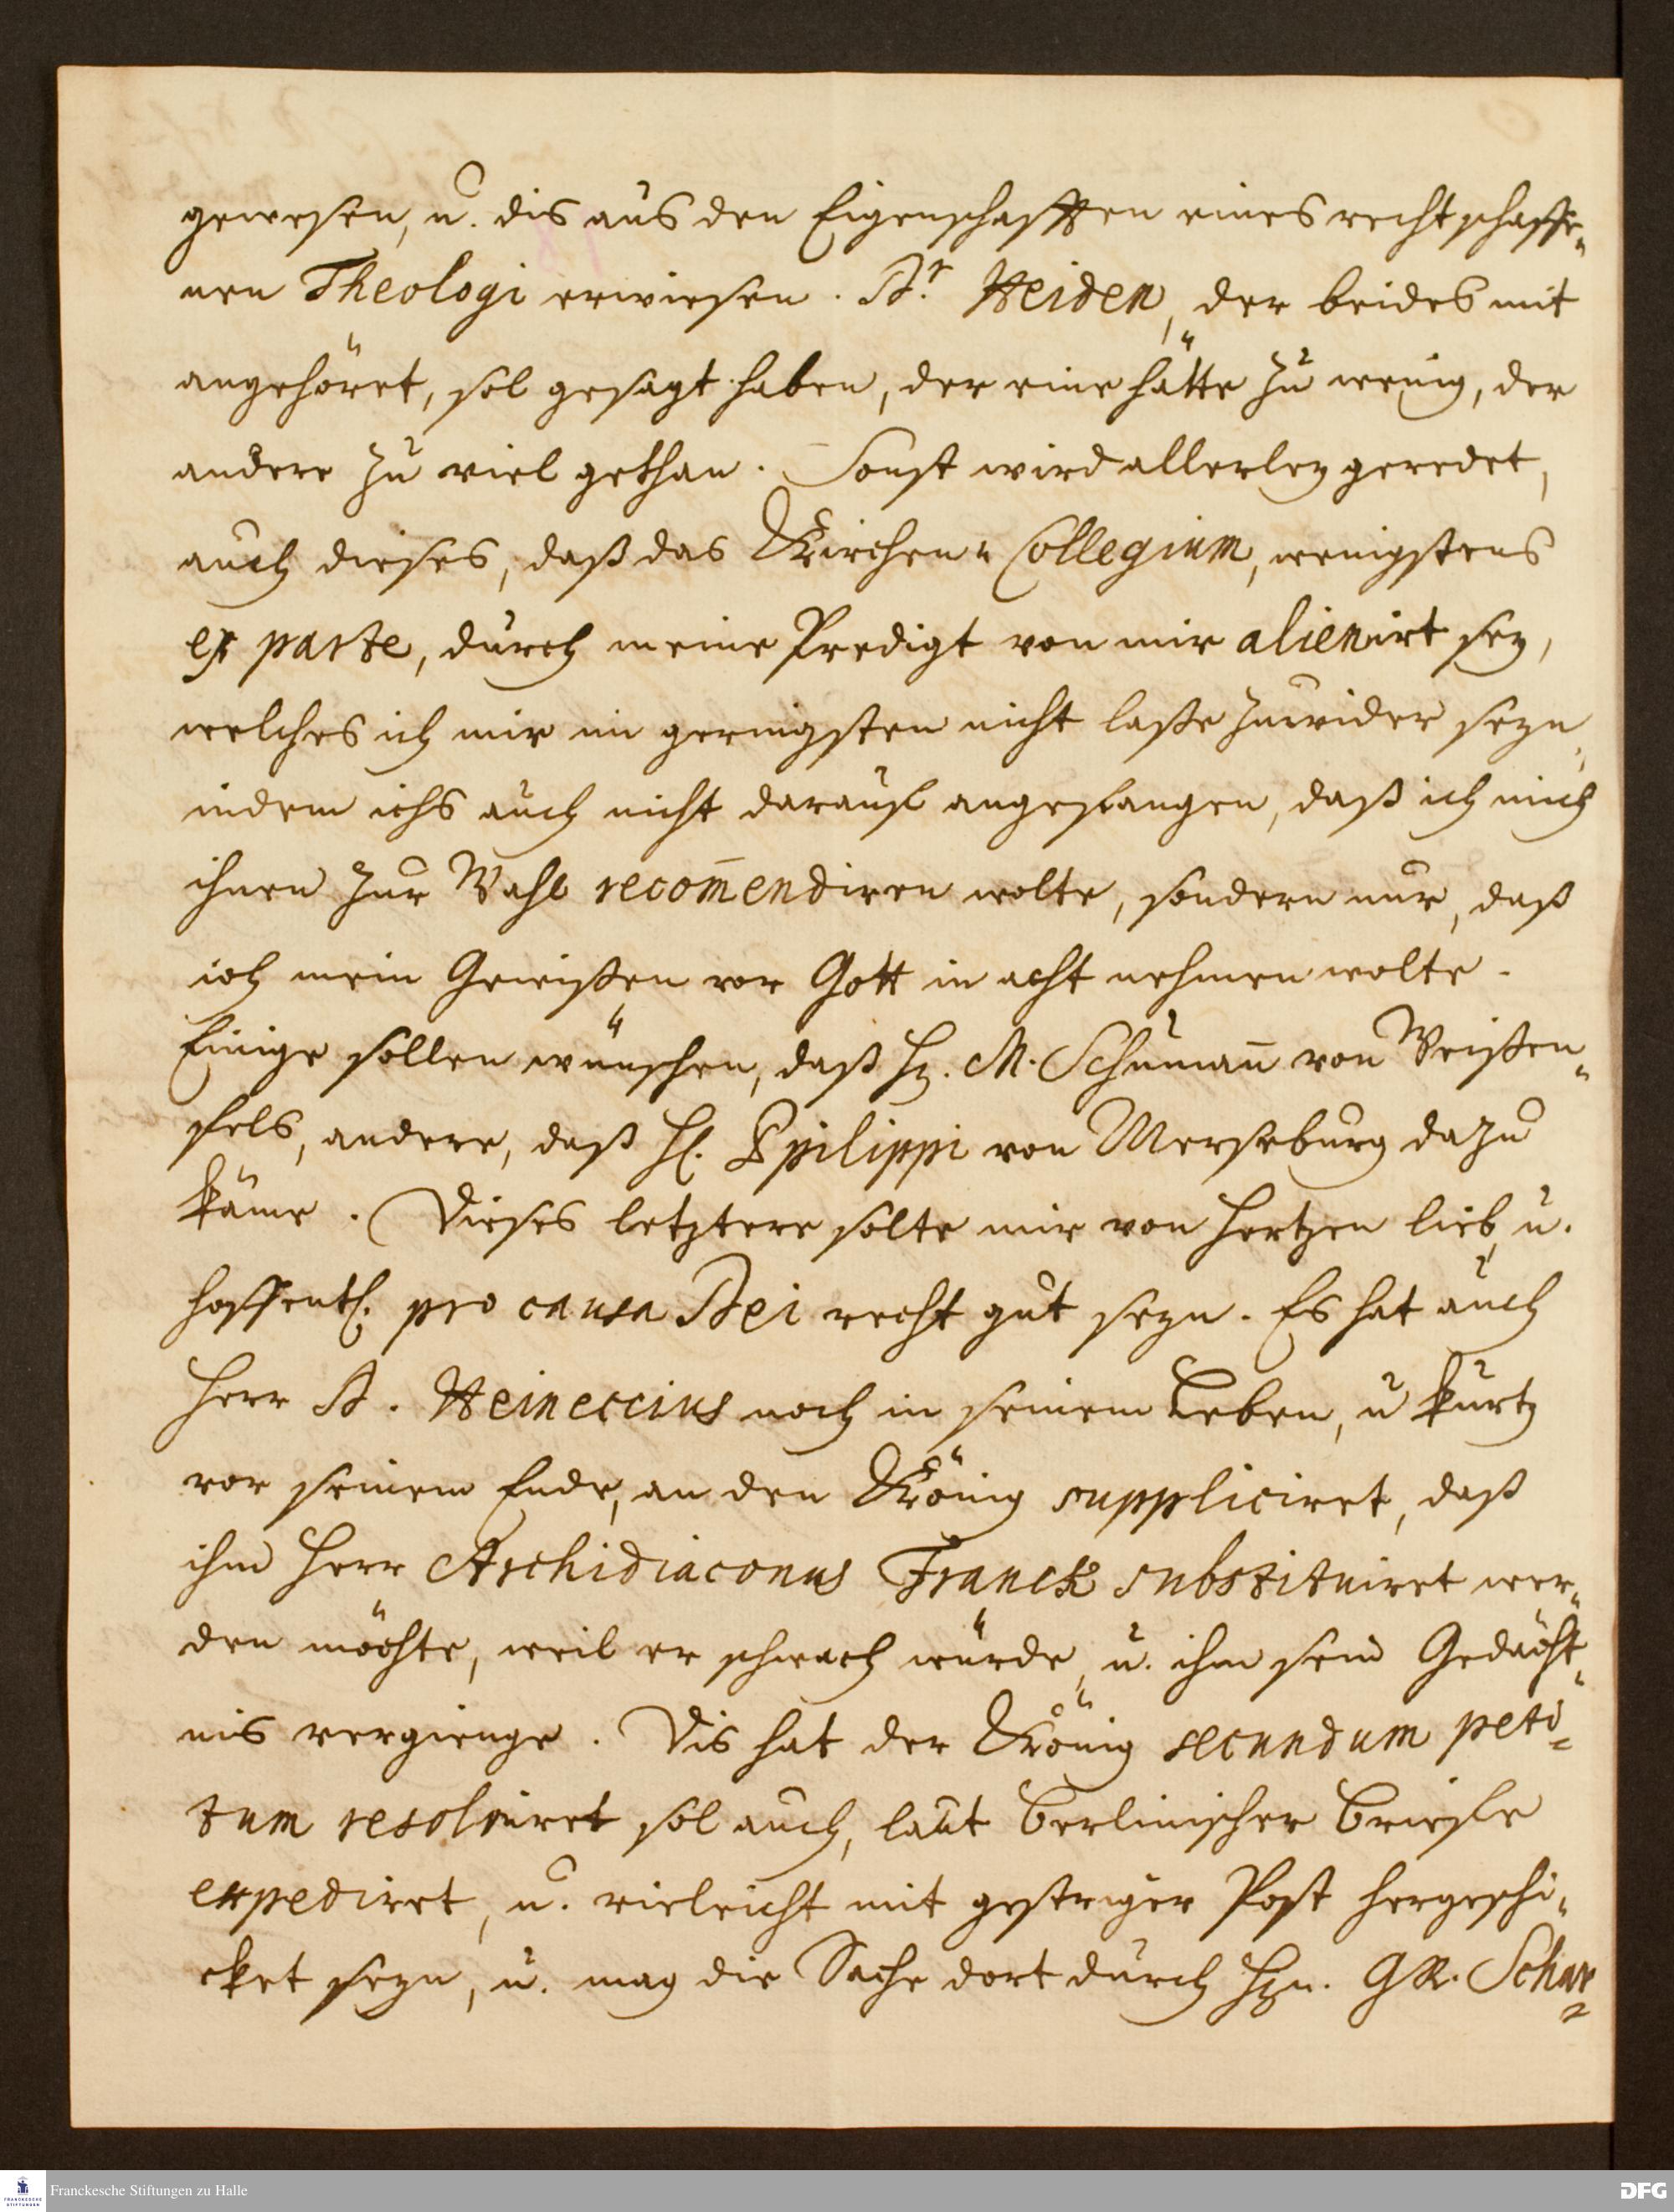 gewesen, u. dis aus den Eigenschafften eines rechtschaffe-
nen Theologi erwiesen. Dr. Heiden, der beides mit
angehöret, sol gesagt haben, der eine hätte zu wenig, der
andere zu viel gethan. Sonst wird allerley geredet,
auch dieses, daß das Kirchen-Collegium, wenigstens
ex parte, durch meine Predigt von mir alienirt sey,
welches ich mir im geringsten nicht laße zuwider seyn,
indem ichs auch nicht darauf angefangen, daß ich mich
ihnen zur Wahl recom̄endiren wolte, sondern nur, daß
ich mein Gewißen vor Gott in acht nehmen wolte.
Einige sollen wünschen, daß H. M. Schuman̄ von Weißen-
fels, andere, daß H. Philippi von Merseburg dazu
käme. Dieses letztere solte mir von Hertzen lieb, u.
hoffentl. pro causa Dei recht gut seyn. Es hat auch
Herr D. Heineccius noch in seinem Leben, u kurtz
vor seinem Ende, an den König suppliciret, daß
ihm Herr Archidiaconus Franck substituiret wer-
den möchte, weil er schwach würde, u. ihm sein Gedächt-
nis vergienge. Dis hat der König secundum peti-
tum resolviret sol auch, laut Berlinischer Briefe
expediret, u. vieleicht mit gestriger Post hergeschi-
cket seyn, u. mag die Sache dort durch Hn. GR. Schar-
Franckesche Stiftungen zu Halle
FRANCKESCHE STIFTUNGEN
DFG